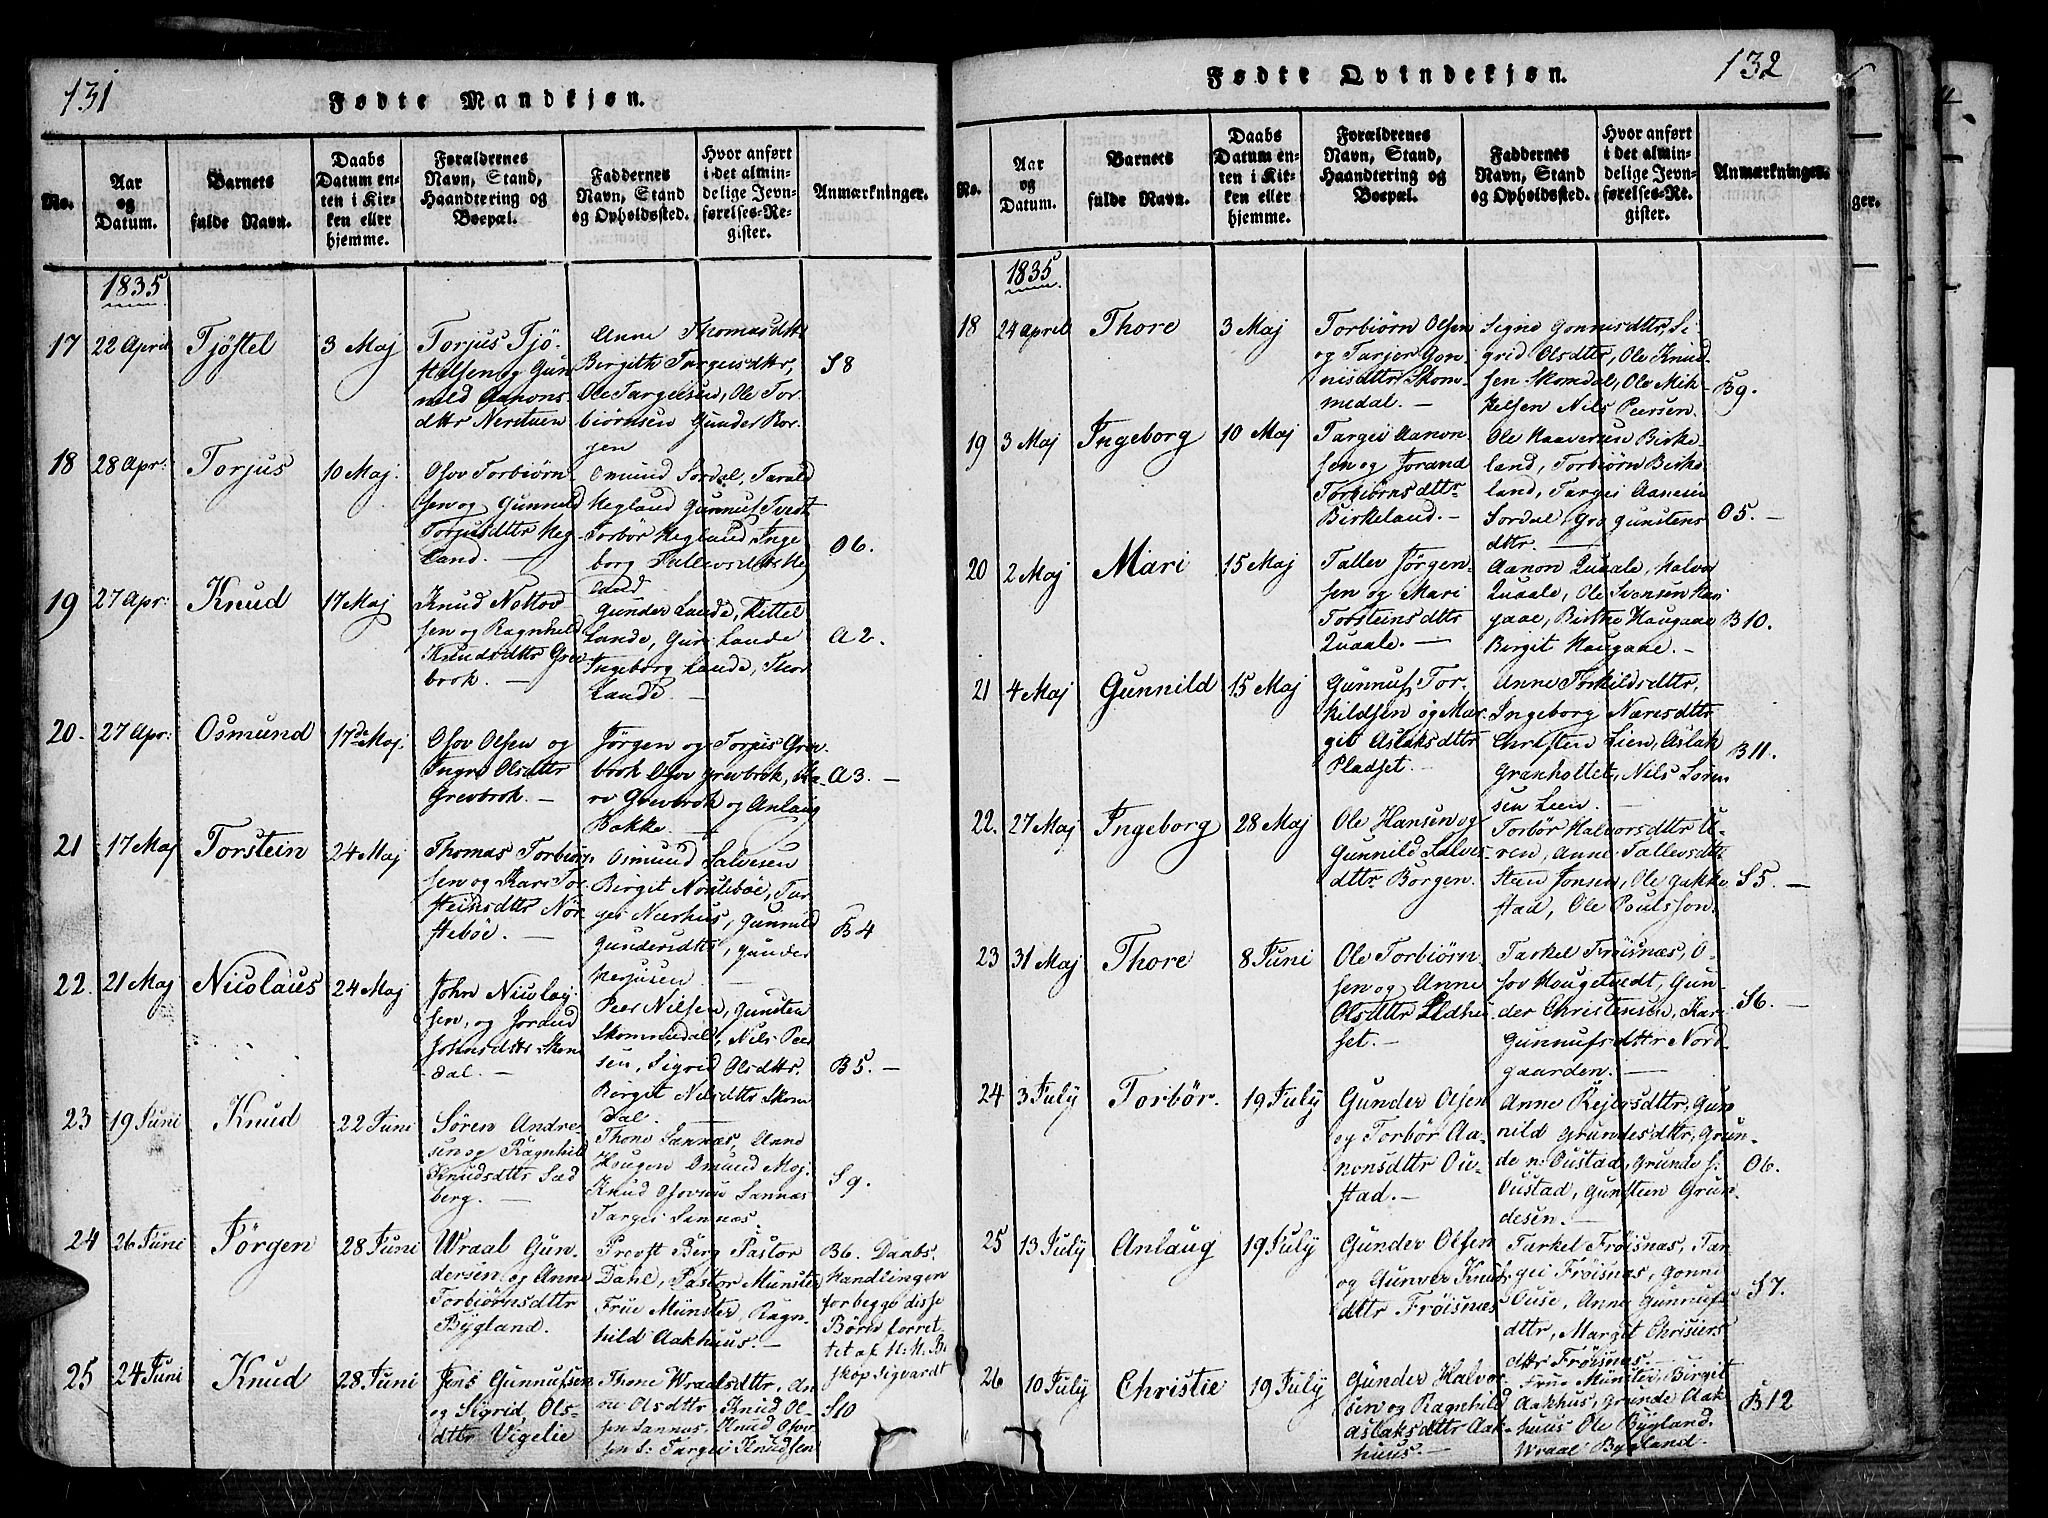 131
Fødte Mandkjøn.
No.
Aar og Datum.
Barnets fulde Navn.
Daabs Datum enten i Kirken eller hjemme.
Forældrenes Navn, Stand, Haandtering og Boepæl.
Faddernes Navn, Stand og Opholdssted.
Hvor anført i det almindelige Jevnførelses-Register.
Anmærkninger.
1835
17 22 April Tjøstel 3 Maj
Torjus Tjø-
stelsen og Gun
nild Aanons-
dttr Nerstuen
Anne Thomasdttr
Birgith Targiesdttr,
Ole Targeisen, Ole Tor-
biørnsen Gunder Bor-
gen
S8
18 28 Apr: Torjus 10 Maj.
Osov Torbiørn-
sen og Gunneld
Torjusdttr Heg-
land. —
Omund Sordal, Tarald
Hegland Gunnuf Tvedt
Torbør Hegland, Inge-
borg Tallevsdttr Heg
land
O6.
19 27 Apr: Knud 17 Maj
Knud Nottov
sen og Ragnhild
Knudsdttr Grev
brok. —
Gunder Lande, Kettel
Lande, Guri Lande
Ingeborg Lande, Thor
Lande. —
A2.
20. 27 Apr: Osmund 17de Maj.
Osov Olsen og
Ingri Olsdttr
Grevbrok. —
Jørgen og Torjus Grev-
brok Osov Grevbrok, Ka-
ri Grevbrok og Anlaug
Bakke. —
A3. —
21 17 Maj Torstein 24 Maj
Thomas Torbiørn
sen og Kari Tor-
steinsdttr Nor-
stebøe. —
Osmund Salvesen
Birgit Norstebøe, Tar
gei Nærhus, Gunnild
Gundersdttr, Gunder
Herjusen —
B4
22. 21 Maj Nicolaus 24 Maj
John Nicolay-
sen, og Jorand
Johnsdttr Skom
dal. —
Peer Nilsen, Gunsten
Skommedal, Nils Peer
sen, Sigrid Olsdttr.
Børget Nilsdttr Skom
dal.
B5. —
23 19 Juni Knud 22 Juni
Søren Andre-
sen og Ragnhild
Knudsdttr Sæd
berg. —
Thone Sannæs, Anne
Hougen Omund Moj.
Knud Osovsen Sannæs
Targei Sannæs.
S9.
24 26 Juni Jørgen 28 Juni
Wraal Gun-
dersen og Anne
Torbiørnsdttr
Bygland.
Provst Berg Pastor
Dahl, Pastor Münster
Frue Münster, Ragn-
hild Aakhuus. —
B6. Daabs-
Handlingen
for begge disse
Børn forret-
tet af H. H. Bi
skop Sigvardt
25 24 Juni Knud 28 Juni
Jens Gunnufsen
og Sigrid Ols-
dttr Vigelie
Thone Wraalsdttr, An
ne Olsdttr Knud Ol-
sen Sannes, Knud Osov
sen S: Targei Knudsen
S10
132
Fødte Qvindekjøn.
No.
Aar og Datum.
Barnets fulde Navn.
Daabs Datum enten i Kirken eller hjemme.
Forældrenes Navn, Stand, Haandtering og Boepæl.
Faddernes Navn, Stand og Opholdssted.
Hvor anført i det almindelige Jevnførelses-Register.
Anmærkninger.
1835
18 24 April Thore 3 Maj
Torbiørn Olsen
og Tarjer Gon-
nisdttr Skom-
medal. —
Signe Gonnisdttr, Si-
grid Olsdttr, Ole Knud-
sen Skomdal, Ole Mik-
kelsen Nils Peersen.
B9.
19 3 Maj Ingeborg 10 Maj
Targei Aanon-
sen og Jorand
Torbiørnsdttr
Birkeland. —
Ole Haaversen Birke
land, Torbiørn Birke-
land, Targei Aanesen
Sordal, Gro Gunstens
dttr. —
O5. —
20 2 Maj Mari 15 Maj
Tallev Jørgen-
sen og Mari
Torsteinsdttr
Quaale. —
Aanon Quaale, Halvor
Quaale, Ole Svensen Hau
gaae, Birthe Haugaae
Birgit Haugaae. —
B10.
21 4 Maj Gunnild 15 Maj
Gunnuf Tor-
kildsen og Mar-
git Aslaksdttr
Pladset. —
Anne Torkildsdttr,
Ingeborg Næresdttr
Christen Lien, Aslak
Granholtet, Nils Søren
sen Lien. —
B11.
22. 27 Maj Ingeborg 28 Maj
Ole Hansen og
Gunnild Salves-
dttr Borgen.
Torbør Halvorsdttr U-
ren, Anne Tallevsdttr
Sten Jonsen, Ole Gakke-
stad, Ole Poulsson.
S5. —
23 31 Maj Thore 8 Juni
Ole Torbiørn-
sen og Anne
Olsdttr Lidhe-
set. —
Tarkel Frøisnæs, O-
sov Hougetvedt, Gun-
der Christensen, Kar
Gunnufsdttr Nord-
gaarden. —
S6. —
24 3 July Torbør. 19 July
Gunder Olsen
og Torbør Aa-
nonsdttr Ou-
stad. —
Anne Rejersdttr, Gun
nild Grundesdttr, Grun-
de n: Oustad, Grunde s:
Oustad, Gunsten Grun-
desen. —
O6.
25 13 July Anlaug 19 July
Gunder Olsen
og Gunver Knuds
dttr Frøisnæs
Turkel Frøisnas, Tar
gei Frøisnas, Gonni
Ouse, Anne Gunnufs-
dttr, Margit Chrisiers
dttr Frøisnas. —
S7.
26 10 July Christie 19 July
Günder Halvor
sen og Ragnhild
Aslaksdttr Aak-
huus. —
Frue Münster, Birgit
Aakhus, Grunde Aak-
huus Ole Bygland.
Wraal Bygland.
B12
ger.